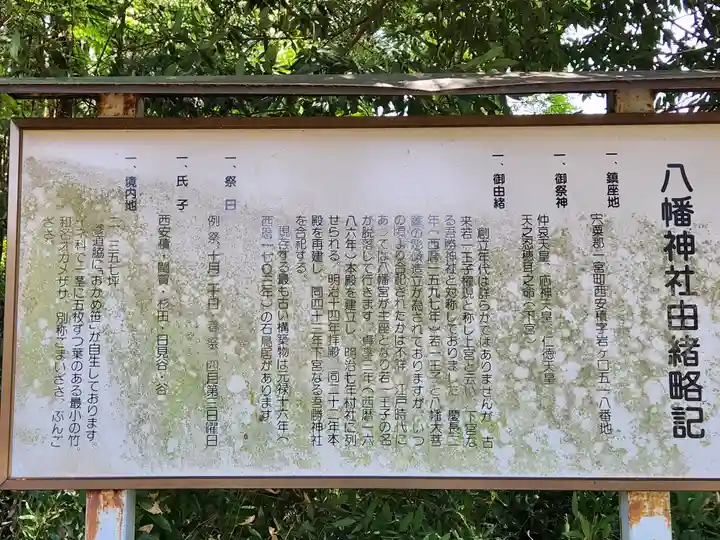 八幡神社由緒略記
一、鎮座地
宍粟郡一宮町西安積字岩ヶ口五一八番地
一、御祭神
仲哀天皇 応神天皇 仁徳天皇
天之忍穂耳之命(下宮)
一、御由緒
創立年代は詳らかではありませんが、古
来若一王子権現と称し上宮と云い、下宮な
る吾勝明神と並称しておりました。慶長二
年(西暦一五九七年)若一王子、八幡大菩
薩の彫造立が為されておりますが、いつ
の頃より合祀されたかは不詳、江戸時代に
あっては八幡宮が主座となり若一王子の名
が脱落して行きます。貞享三年(西暦一六
八六年)本殿を建立し、明治七年村社に列
せられる。明治十四年拝殿、同三十二年本
殿を再建し、同四十三年下宮なる吾勝神社
を合祀する。
現存する最も古い構築物は元禄十六年(
西暦一七〇三年)の石鳥居があります。
一、祭日
例祭、十月二十日 春祭、四月第三日曜日
一、氏子
西安積・閏賀・杉田・日見谷・谷
一、境内地
二、三五七坪
参道脇に「おかめ笹」が自生しております。
イネ科で一茎に五枚ずつ葉のある最小の竹。
和名オカメザサ、別称ごまいざさ、ぶんご
ざさ、